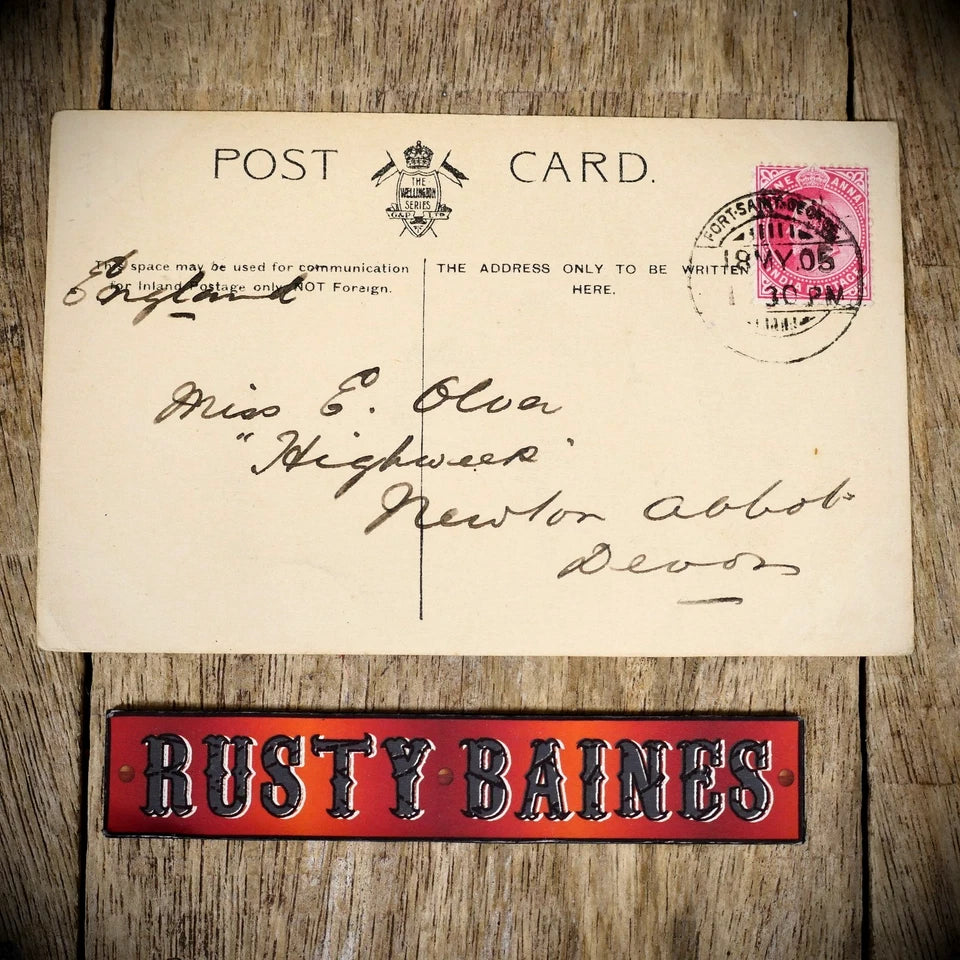 POST CARD.
THE
WELLINGTON
SERIES
G&P LTD
This space may be used for communication
for Inland Postage only NOT Foreign.
THE ADDRESS ONLY TO BE WRITTEN
HERE.
England
ONE ANNA
INDIA POSTAGE
FORT·SAINT·GEORGE
18 MY.05
30 PM
Miss E. Olver
"Highweek"
Newton Abbot
Devon
RUSTY BAINES